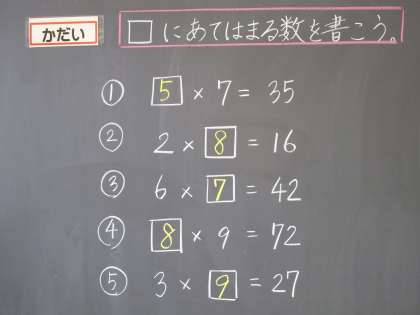 かだい
□にあてはまる数を書こう。
① 5 × 7 = 35
② 2 × 8 = 16
③ 6 × 7 = 42
④ 8 × 9 = 72
⑤ 3 × 9 = 27